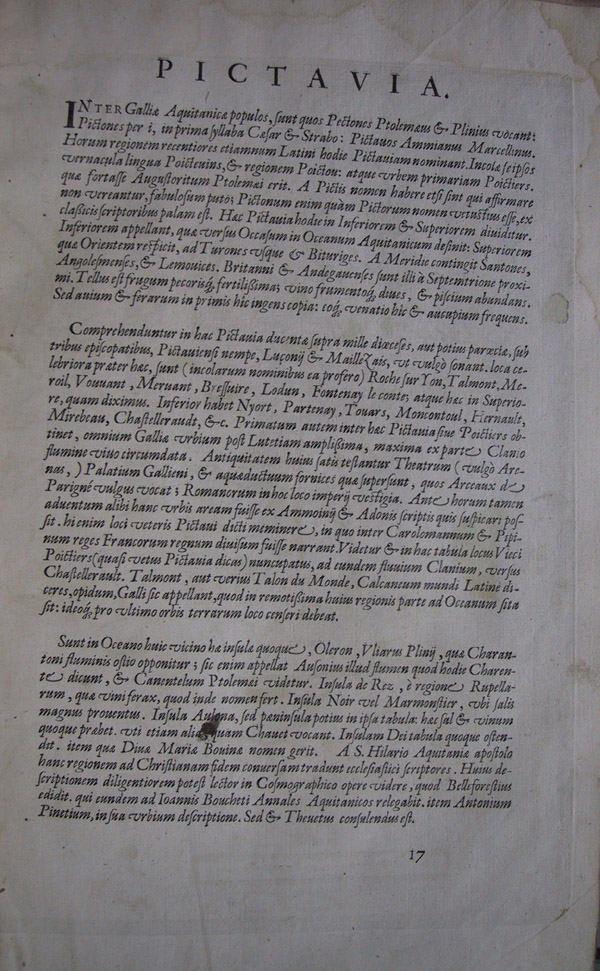 PICTAVIA.
INTER Galliæ Aquitanicæ populos, sunt quos Pectones Ptolemæus & Plinius vocant:
Pictones per i, in prima syllaba Cæsar & Strabo: Pictauos Ammianus Marcellinus.
Horum regionem recentiores etiamnum Latini hodie Pictauiam nominant. Incolæ se ipsos
vernacula lingua Poicteuins, & regionem Poictou: atque vrbem primariam Poictiers.
quæ fortasse Augustoritum Ptolemæi erit. A Pictis nomen habere etsi sint qui affirmare
non vereantur, fabulosum puto; Pictonum enim quàm Pictorum nomen vetustius esse, ex
classicis scriptoribus palam est. Hæc Pictauia hodie in Inferiorem & Superiorem diuiditur.
Inferiorem appellant, quæ versus Occasum in Oceanum Aquitanicum definit: Superiorem
quæ Orientem respicit, ad Turones vsque & Bituriges. A Meridie contingit Santones,
Angolesmenses, & Lemouices. Britanni & Andegauenses sunt illi à Septemtrione proxi-
mi. Tellus est frugum pecorisq́; fertilissima; vino frumentoq́; diues, & piscium abundans.
Sed auium & ferarum in primis hic ingens copia: eoq́; venatio hic & aucupium frequens.
Comprehenduntur in hac Pictauia ducentæ supra mille diœceses, aut potius parœciæ, sub
tribus episcopatibus, Pictauiensi nempe, Luçonij & Maillezais, vt vulgò sonant. loca ce-
lebriora præter hæc, sunt (incolarum nominibus ea profero) Roche sur Ton, Talmont, Me-
roil, Vouuant, Meruant, Bressuire, Lodun, Fontenay le conte; atque hæc in Superio-
re, quam diximus. Inferior habet Nyort, Partenay, Touars, Moncontoul, Hernault,
Mirebeau, Chastelleraudt, &c. Primatum autem inter hæc Pictauia siue Poictiers ob-
tinet, omnium Galliæ vrbium post Lutetiam amplissima, maxima ex parte Clanio
flumine viuo circumdata. Antiquitatem huius satis testantur Theatrum (vulgò Are-
nas,) Palatium Gallieni, & aquæductuum fornices quæ supersunt, quos Arceaux de
Parigné vulgus vocat; Romanorum in hoc loco imperij vestigia. Ante horum tamen
aduentum alibi hanc vrbis aream fuisse ex Ammoinij & Adonis scriptis quis suspicari pos-
sit. hi enim loci veteris Pictaui dicti meminere, in quo inter Carolomannum & Pipi-
num reges Francorum regnum diuisum fuisse narrant. Videtur & in hac tabula locus Vieci
Poictiers (quasi vetus Pictauia dicas) nuncupatus, ad eundem fluuium Clanium, versus
Chastellerault. Talmont, aut verius Talon du Monde, Calcaneum mundi Latinè di-
ceres, opidum, Galli sic appellant, quod in remotissima huius regionis parte ad Oceanum sita
sit: ideoq́; pro vltimo orbis terrarum loco censeri debeat.
Sunt in Oceano huic vicino hæ insulæ quoque, Oleron, Vliarus Plinij, quæ Charan-
toni fluminis ostio opponitur; sic enim appellat Ausonius illud flumen quod hodie Charen-
te dicunt, & Canentelum Ptolemæi videtur. Insula de Rez, è regione Rupella-
rum, quæ vini ferax, quod inde nomen fert. Insula Noir vel Marmonstier, vbi salis
magnus prouentus. Insula Aulona, sed pæninsula potius in ipsa tabula: hæc sal & vinum
quoque præbet. vti etiam alia, quam Chauet vocant. Insulam Dei tabula quoque osten-
dit. item quæ Diuæ Mariæ Bouinæ nomen gerit. A S. Hilario Aquitaniæ apostolo
hanc regionem ad Christianam fidem conuersam tradunt ecclesiastici scriptores. Huius de-
scriptionem diligentiorem potest lector in Cosmographico opere videre, quod Belleforestius
edidit. qui eundem ad Ioannis Boucheti Annales Aquitanicos relegabit. item Antonium
Pinetium, in sua vrbium descriptione. Sed & Theuetus consulendus est.
17